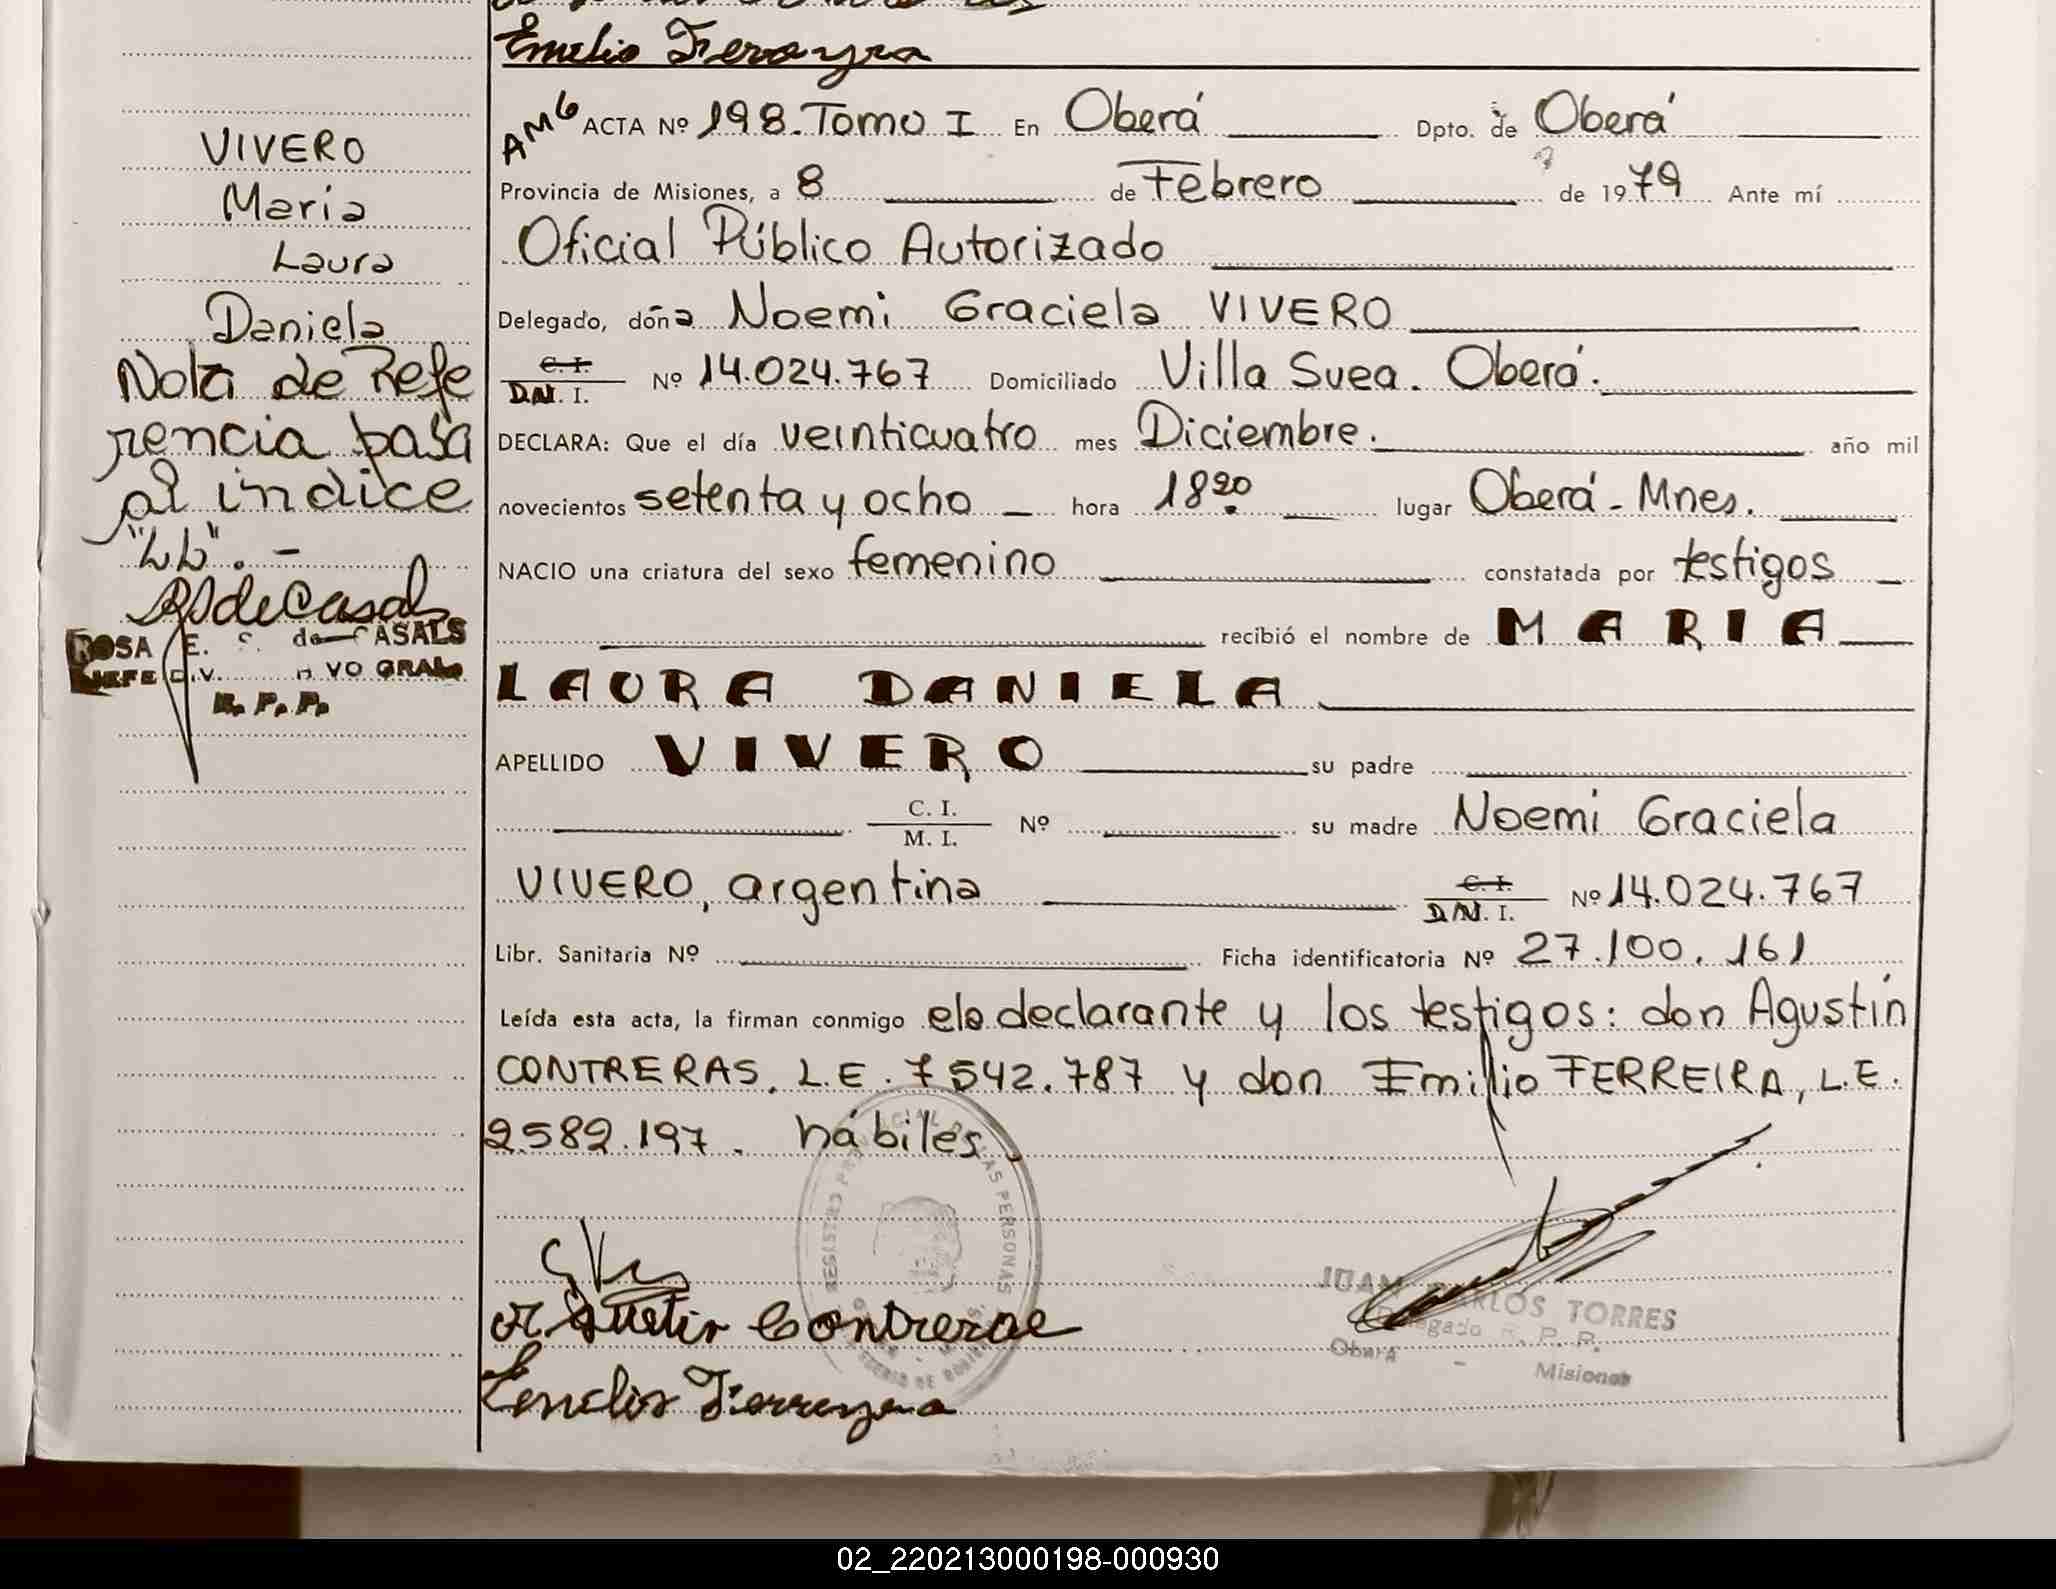 Emilio Ferrayra
VIVERO
Maria
Laura
Daniela
Nota de Refe
rencia pasa
al indice
"LL". -
RSdeCasals
ROSA E. S. de CASALS
JEFE DIV. VO GRAL
R. P. P.
AMG ACTA Nº 198. Tomo I En Oberá Dpto. de Oberá
Provincia de Misiones, a 8 de Febrero de 1979 Ante mí
Oficial Público Autorizado
Delegado, doña Noemi Graciela VIVERO
C. I.
D.N. I. Nº 14.024.767 Domiciliado Villa Svea. Oberá.
DECLARA: Que el día veinticuatro mes Diciembre. año mil
novecientos setenta y ocho hora 18.20 lugar Oberá - Mnes.
NACIO una criatura del sexo femenino constatada por testigos
recibió el nombre de MARIA
LAURA DANIELA
APELLIDO VIVERO su padre
C. I.
M. I. Nº su madre Noemi Graciela
VIVERO, argentina C. I.
D.N. I. Nº 14.024.767
Libr. Sanitaria Nº Ficha identificatoria Nº 27.100.161
Leída esta acta, la firman conmigo declarante y los testigos: don Agustín
CONTRERAS. L.E. 7542.787 y don Emilio FERREIRA, L.E.
2582.197. hábiles.
REGISTRO PROVINCIAL DE LAS PERSONAS
JUAN CARLOS TORRES
Delegado R. P. P.
Oberá - Misiones
Contreras
Emilio Ferrayra
02_220213000198-000930